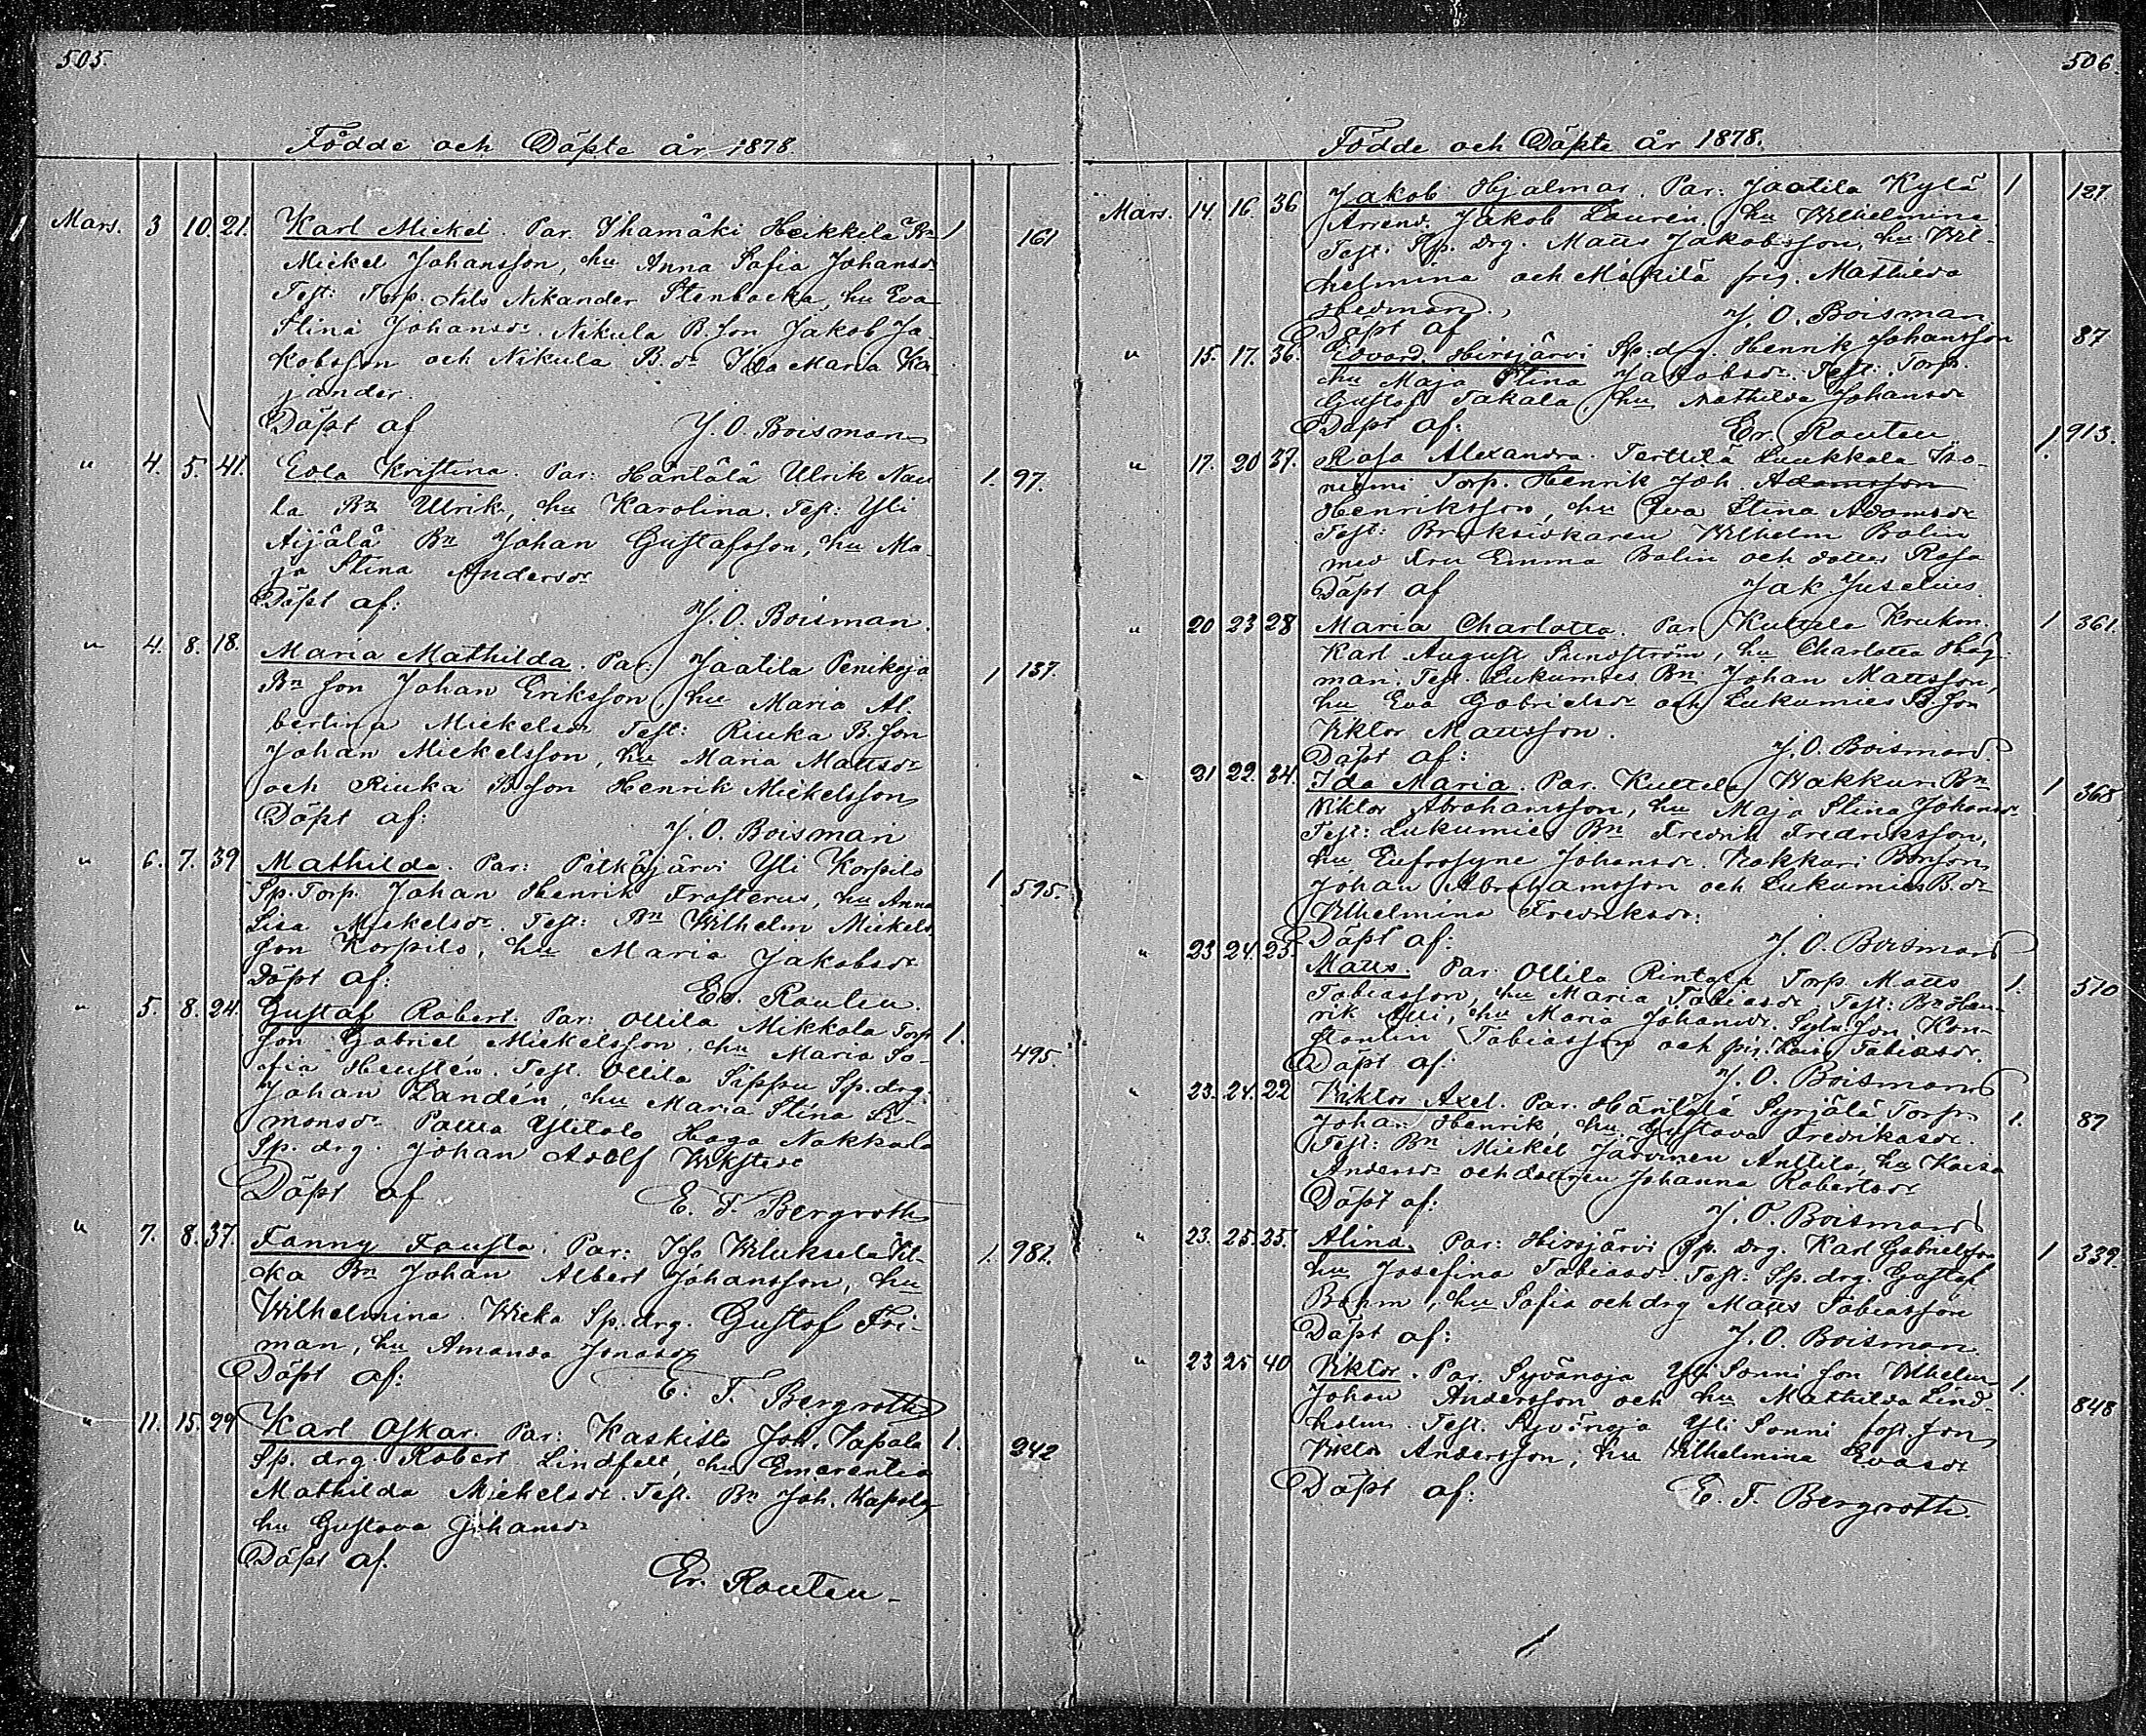 505.
Födde och Döpte år 1878.
Mars. 3 10. 21. Karl Mickel. Par. Ihamäki Heikkilä Bn 1 161
Mickel Johansson, hu Anna Sofia Johansdr
Test: Torp. Nils Nikander Stenbacka, hu Eva
Stina Johansdr. Nikula B. son Jakob Ja-
kobsson och Nikula B. dr Ida Maria Ka-
jander.
Döpt af J. O. Boisman
" 4. 5. 41. Eva Kristina. Par: Häntälä Ulrik Nau 1. 97.
la Bn Ulrik, hu Karolina. Test: Yli
Äijälä Bn Johan Gustafsson, hu Ma-
ja Stina Andersdr
Döpt af: J. O. Boisman.
" 4. 8. 18. Maria Mathilda. Par: Jaatila Penikoja 1 137.
Bn son Johan Eriksson hu Maria Al-
bertina Mickelsdr Test: Riuka B. son
Johan Mickelsson, hu Maria Mattsdr
och Riuka B son Henrik Mickelsson
Döpt af: J. O. Boisman
" 6. 7. 39 Mathilda. Par: Pitkäjärvi Yli Korpilo 1 595.
Sp. Torp. Johan Henrik Frosterus, hu Anna
Lisa Mickelsdr. Test: Bn Wilhelm Mickels
son Korpilo, hu Maria Jakobsdr
Döpt af: Er. Rauten.
" 5. 8. 24. Gustaf Robert. Par: Ollila Mikkola Torp 1. 495.
son Gabriel Mickelsson, hu Maria So-
fia Heusten. Test. Ollila Sippu Sp. drg.
Johan Landén, hu Maria Stina Si-
monsdr Palla Ylitalo Haga Nokkala
Sp. drg. Johan Adolf Wikstedt
Döpt af E. T. Bergroth
" 7. 8. 37. Fanny Fausta. Par: Iso Wiluksela Vil- 1. 981.
ka Bn Johan Albert Johansson, hu
Wilhelmina. Wieka Sp. drg. Gustof Fri-
man, hu Amanda Jonasdr
Döpt af: E. T. Bergroth
" 11. 15. 29 Karl Oskar. Par: Kaskisto Joh. Vapola 1. 242
Sp. drg. Robert Lindfelt, hu Emerentia
Mathilda Mickelsdr. Test. Bn Joh. Vapola
hu Gustava Johansdr
Döpt af. Er. Rauten
506.
Födde och Döpte år 1878.
Mars. 14. 16. 36 Jakob Hjalmar. Par: Jaatila Kylä 1 127.
Arrend. Jakob Lauren, hu Wilhelmina
Test: Sp. drg. Matts Jakobsson, hu Wil-
helmina och Mäkilä pig. Mathilda
Hedman.
Döpt af J. O. Boisman
" 15. 17. 36. Edvard. Hirsjärvi Sp: drg. Henrik Johansson 87
hu Maja Stina Jakobsdr. Test: Torp.
Gustof Takala, hu Mathilda Johansdr
Döpt af: Er. Rauten
" 17. 20 37. Rosa Alexandra. Terttilä Luukkala Iso- 1. 913.
niemi Torp. Henrik Joh. Adamsson
Henriksson, hu Eva Stina Adamsdr
Test: Bruksidkaren Wilhelm Bolin
med Fru Emma Bolin och dotter Rosa
Döpt af Jak Juselius.
" 20 23 28 Maria Charlotta. Par Kuttala Krukm. 1 361.
Karl August Sundström, hu Charlotta Hag-
man. Test. Lukumies Bn Johan Mattsson,
hu Eva Gabrielsdr och Lukumies B. son
Viktor Mattsson.
Döpt af: J. O. Boisman
" 21 22. 34. Ida Maria. Par. Kuttala Wakkuri Bn 1 368
Viktor Abrahamsson, hu Maja Stina Johansdr.
Test: Lukumies Bn Fredrik Fredriksson,
hu Eufrosyne Johansdr. Wakkuri Bonson
Johan Abrahamsson och Lukumies B. dr
Wilhelmina Fredriksdr.
Döpt af: J. O. Boisman
" 23 24. 25. Matts. Par. Ollila Rintala Torp. Matts 1. 510
Tobiasson, hu Maria Tobiasdr. Test: Bn Hen-
rik Alli, hu Maria Johansdr. Sytn: son Kon-
stantin Tobiasson och pig. Kaisa Tobiasdr.
Döpt af: J. O. Boisman
" 23. 24. 22 Viktor Axel. Par. Häntälä Syrjälä Torp. 1. 87
Johan Henrik, hu Gustava Fredriksdr.
Test: Bn Mickel Järvinen Anttila, hu Kaisa
Andersdr och dottren Johanna Robertsdr
Döpt af: J. O. Boisman
" 23. 25. 25. Alina. Par: Hirsjärvi Sp. drg. Karl Gabrielsson 1 339.
hu Josefina Tobiasdr. Test: Sp. drg. Gustof
Bohm, hu Sofia och drg Matts Tobiasson
Döpt af: J. O. Boisman
" 23 25 40 Viktor. Par. Syvänoja Yli Sonni son Wilhelm 1. 848
Johan Andersson och hu Mathilda Lind-
holm. Test. Syvänoja Yli Sonni fost. son
Viktor Andersson, hu Wilhelmina Evasdr
Döpt af: E. T. Bergroth.